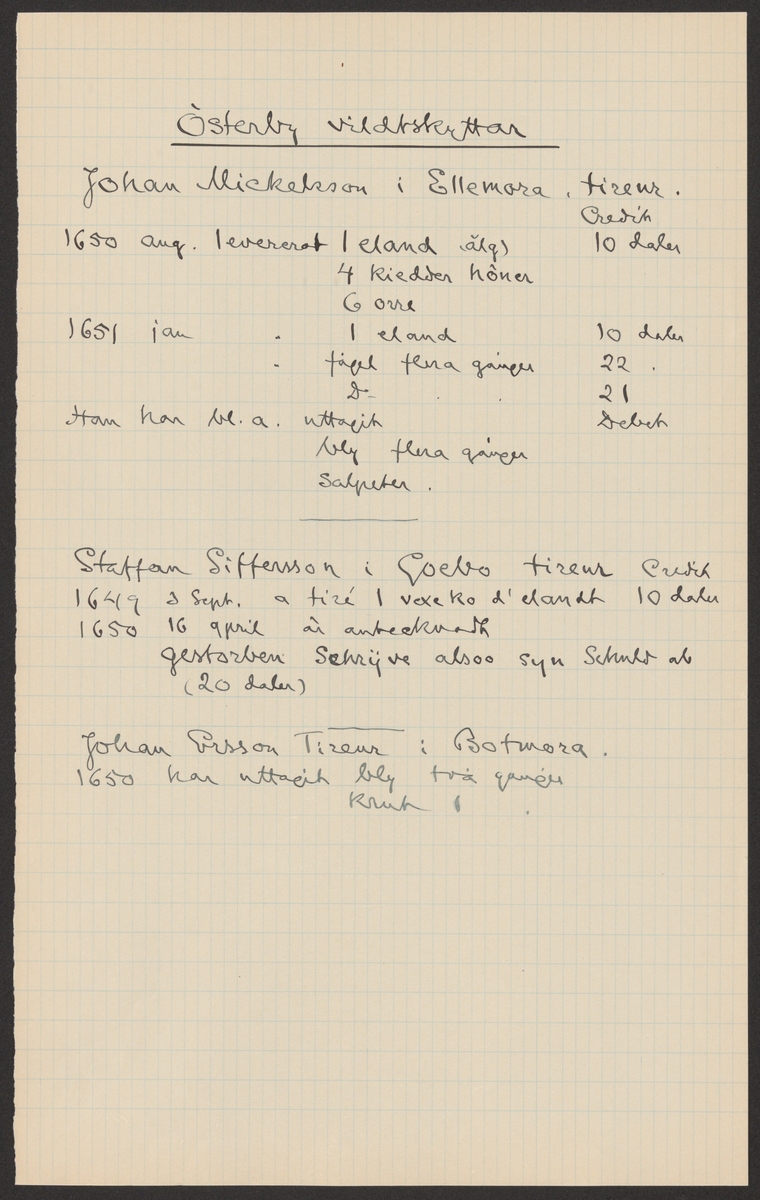 Österby vildtskyttar
Johan Mickelsson i Ellemora, tireur.
Credit
1650 aug. levererat 1 eland (älg) 10 daler
4 kiedder höner
6 orre
1651 jan " 1 eland 10 daler
" fågel flera gånger 22 "
D- " " 21
Han har bl. a. uttagit Debet
bly flera gånger
Salpeter "
Staffan Siffersson i Goebo tireur Credit
1649 3 Sept. a tiré 1 vexe ko d'elandt 10 daler
1650 16 april är antecknadt
gestorben Schrijve alsoo syn Schuld ab
(20 daler)
Johan Ersson Tireur i Botmora.
1650 har uttagit bly två gånger
Krut 1 "